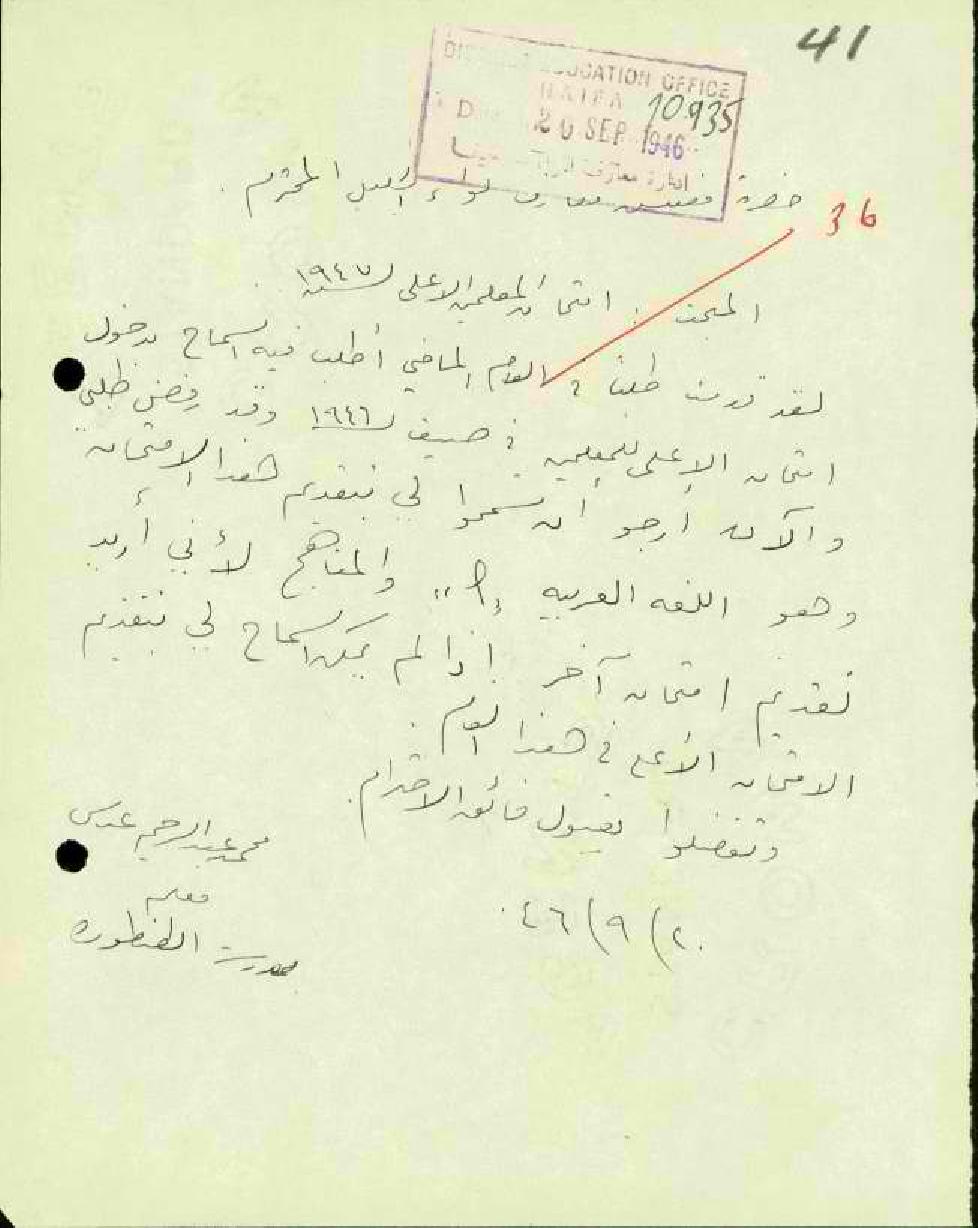 41
DISTRICT EDUCATION OFFICE
HAIFA 10935
20 SEP 1946
ادارة معارف لواء حيفا
حضرة مفتش معارف لواء الجليل المحترم .
36
المبحث : امتحان المعلمين الاعلى لسنة ١٩٤٧
لقد قدمت طلبا في العام الماضي أطلب فيه السماح بدخول
امتحان الاعلى للمعلمين في صيف ١٩٤٦ وقد رفض طلبي
والآن أرجو أن تسمحوا لي بتقديم هذا الامتحان
وهو اللغه العربيه والمناهج لأني أريد
تقديم امتحان آخر إذا لم يمكن السماح لي بتقديم
الامتحان الأعلى في هذا العام .
وتفضلوا بقبول فائق الاحترام .
محمد عبد الرحيم عدس
معلم
مدرسة الطنطوره
٢٠/٩/٤٦